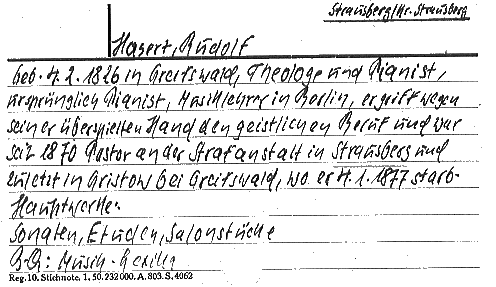 Strausberg/Kr. Strausberg
Hasert, Rudolf
geb. 4. 2. 1826 in Greifswald, Theologe und Pianist,
ursprünglich Pianist, Musiklehrer in Berlin, ergriff wegen
seiner überspielten Hand den geistlichen Beruf und war
seit 1870 Pastor an der Strafanstalt in Strausberg und
zuletzt in Gristow bei Greifswald, wo er 4. 1. 1877 starb.
Hauptwerke:
Sonaten, Etuden, Salonstücke
Musik-
Reg. 10. Stichnote. 1. 50. 232 000. A. 803. S. 4062